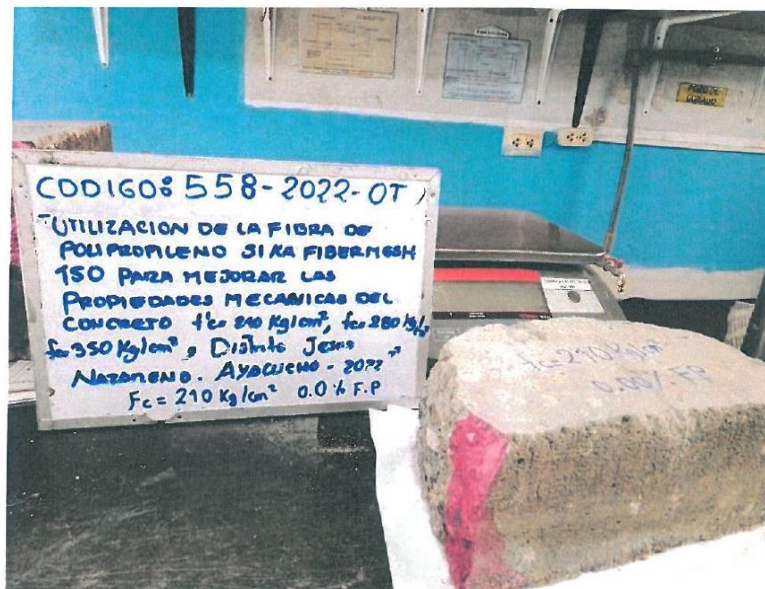 CODIGO: 558-2022-OT
"UTILIZACION DE LA FIBRA DE
POLIPROPILENO SIKA FIBERMESH
150 PARA MEJORAR LAS
PROPIEDADES MECANICAS DEL
CONCRETO f'c= 210 Kg/cm², f'c= 280 Kg/cm²
f'c= 350 Kg/cm², Distrito Jesus
NAZARENO. AYACUCHO - 2022"
Fc = 210 Kg/cm² 0.0 % F.P
fc= 210 Kg/cm²
0.00% F.P